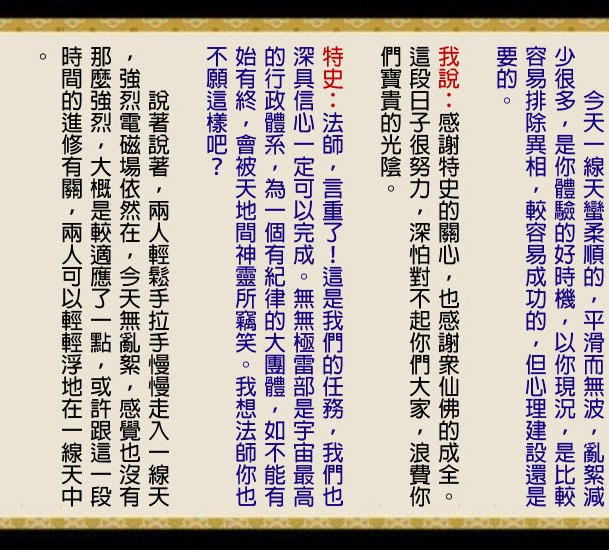 今天一線天蠻柔順的，平滑而無波，亂絮減
少很多，是你體驗的好時機，以你現況，是比較
容易排除異相，較容易成功的，但心理建設還是
要的。
我說：感謝特史的關心，也感謝眾仙佛的成全。
這段日子很努力，深怕對不起你們大家，浪費你
們寶貴的光陰。
特史：法師，言重了！這是我們的任務，我們也
深具信心一定可以完成。無無極雷部是宇宙最高
的行政體系，為一個有紀律的大團體，如不能有
始有終，會被天地間神靈所竊笑。我想法師你也
不願這樣吧？
說著說著，兩人輕鬆手拉手慢慢走入一線天
，強烈電磁場依然在，今天無亂絮，感覺也沒有
那麼強烈，大概是較適應了一點，或許跟這一段
時間的進修有關，兩人可以輕輕浮地在一線天中
。